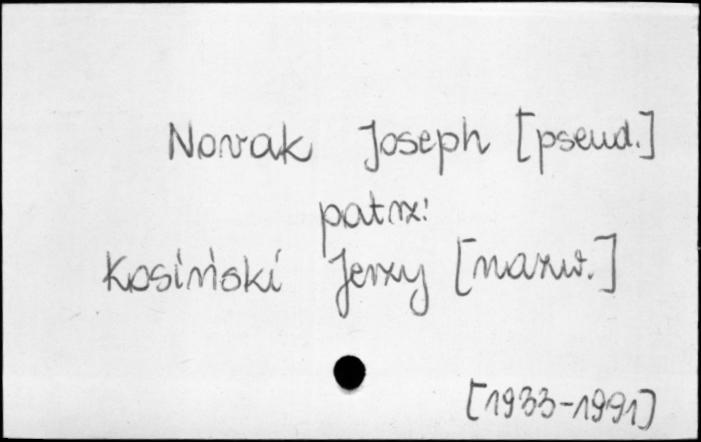 Novak Joseph [pseud.]
patrz:
Kosiński Jerzy [nazw.]
[1933-1991]